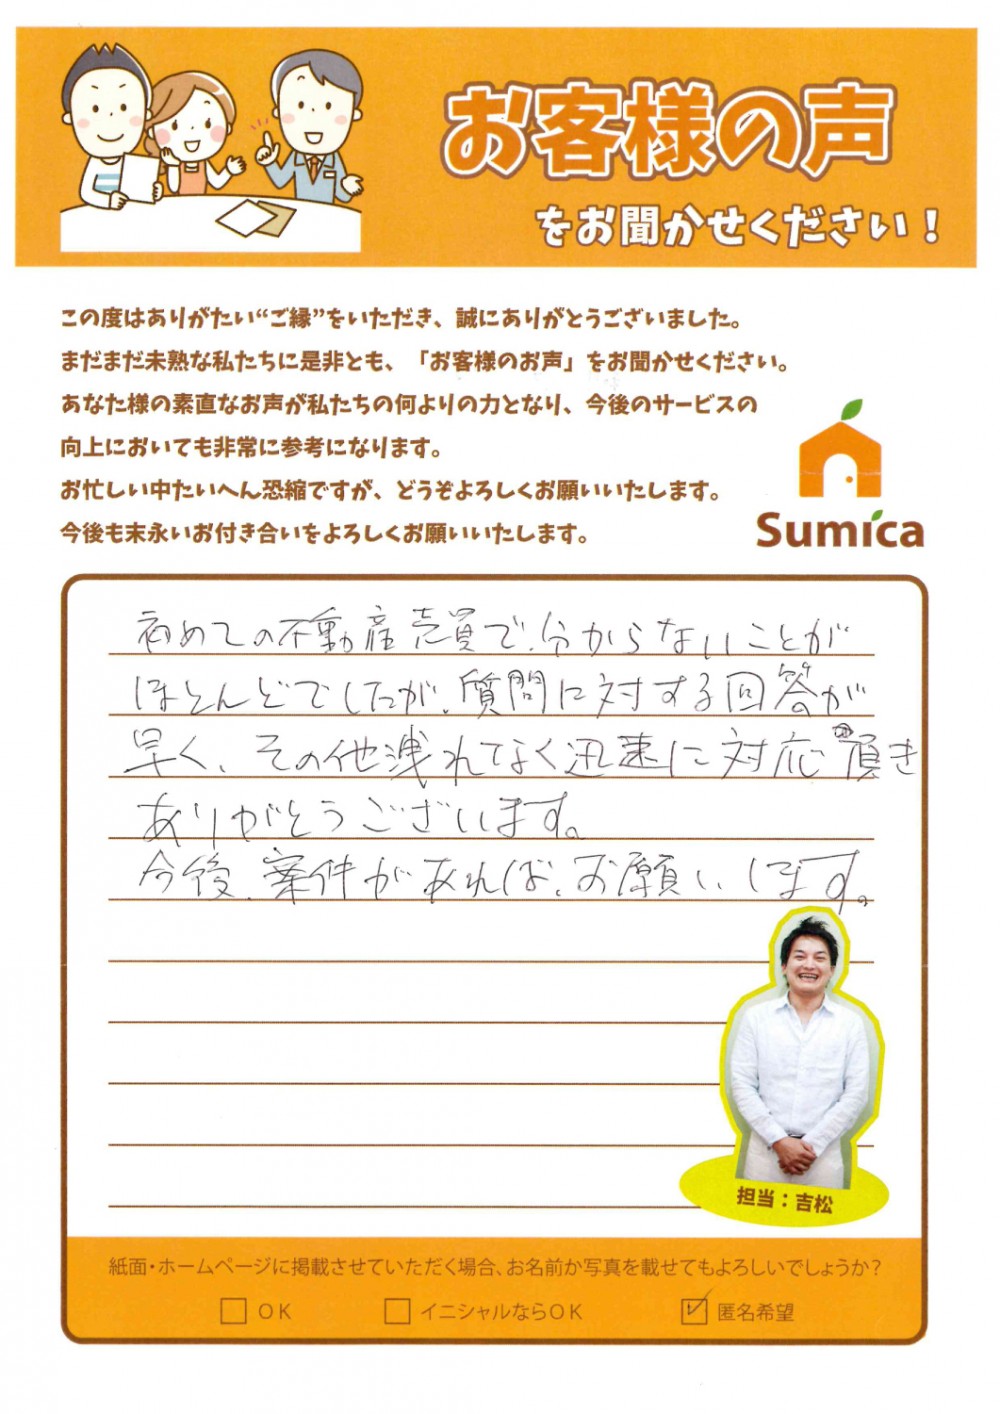 お客様の声
をお聞かせください！
この度はありがたい“ご縁”をいただき、誠にありがとうございました。
まだまだ未熟な私たちに是非とも、「お客様のお声」をお聞かせください。
あなた様の素直なお声が私たちの何よりの力となり、今後のサービスの
向上においても非常に参考になります。
お忙しい中たいへん恐縮ですが、どうぞよろしくお願いいたします。
今後も末永いお付き合いをよろしくお願いいたします。
Sumica
初めての不動産売買で、分からないことが
ほとんどでしたが、質問に対する回答が
早く、その他洩れてなく迅速に対応頂き
ありがとうございます。
今後、案件があれば、お願いします。
担当：吉松
紙面・ホームページに掲載させていただく場合、お名前か写真を載せてもよろしいでしょうか？
OK イニシャルならOK 匿名希望